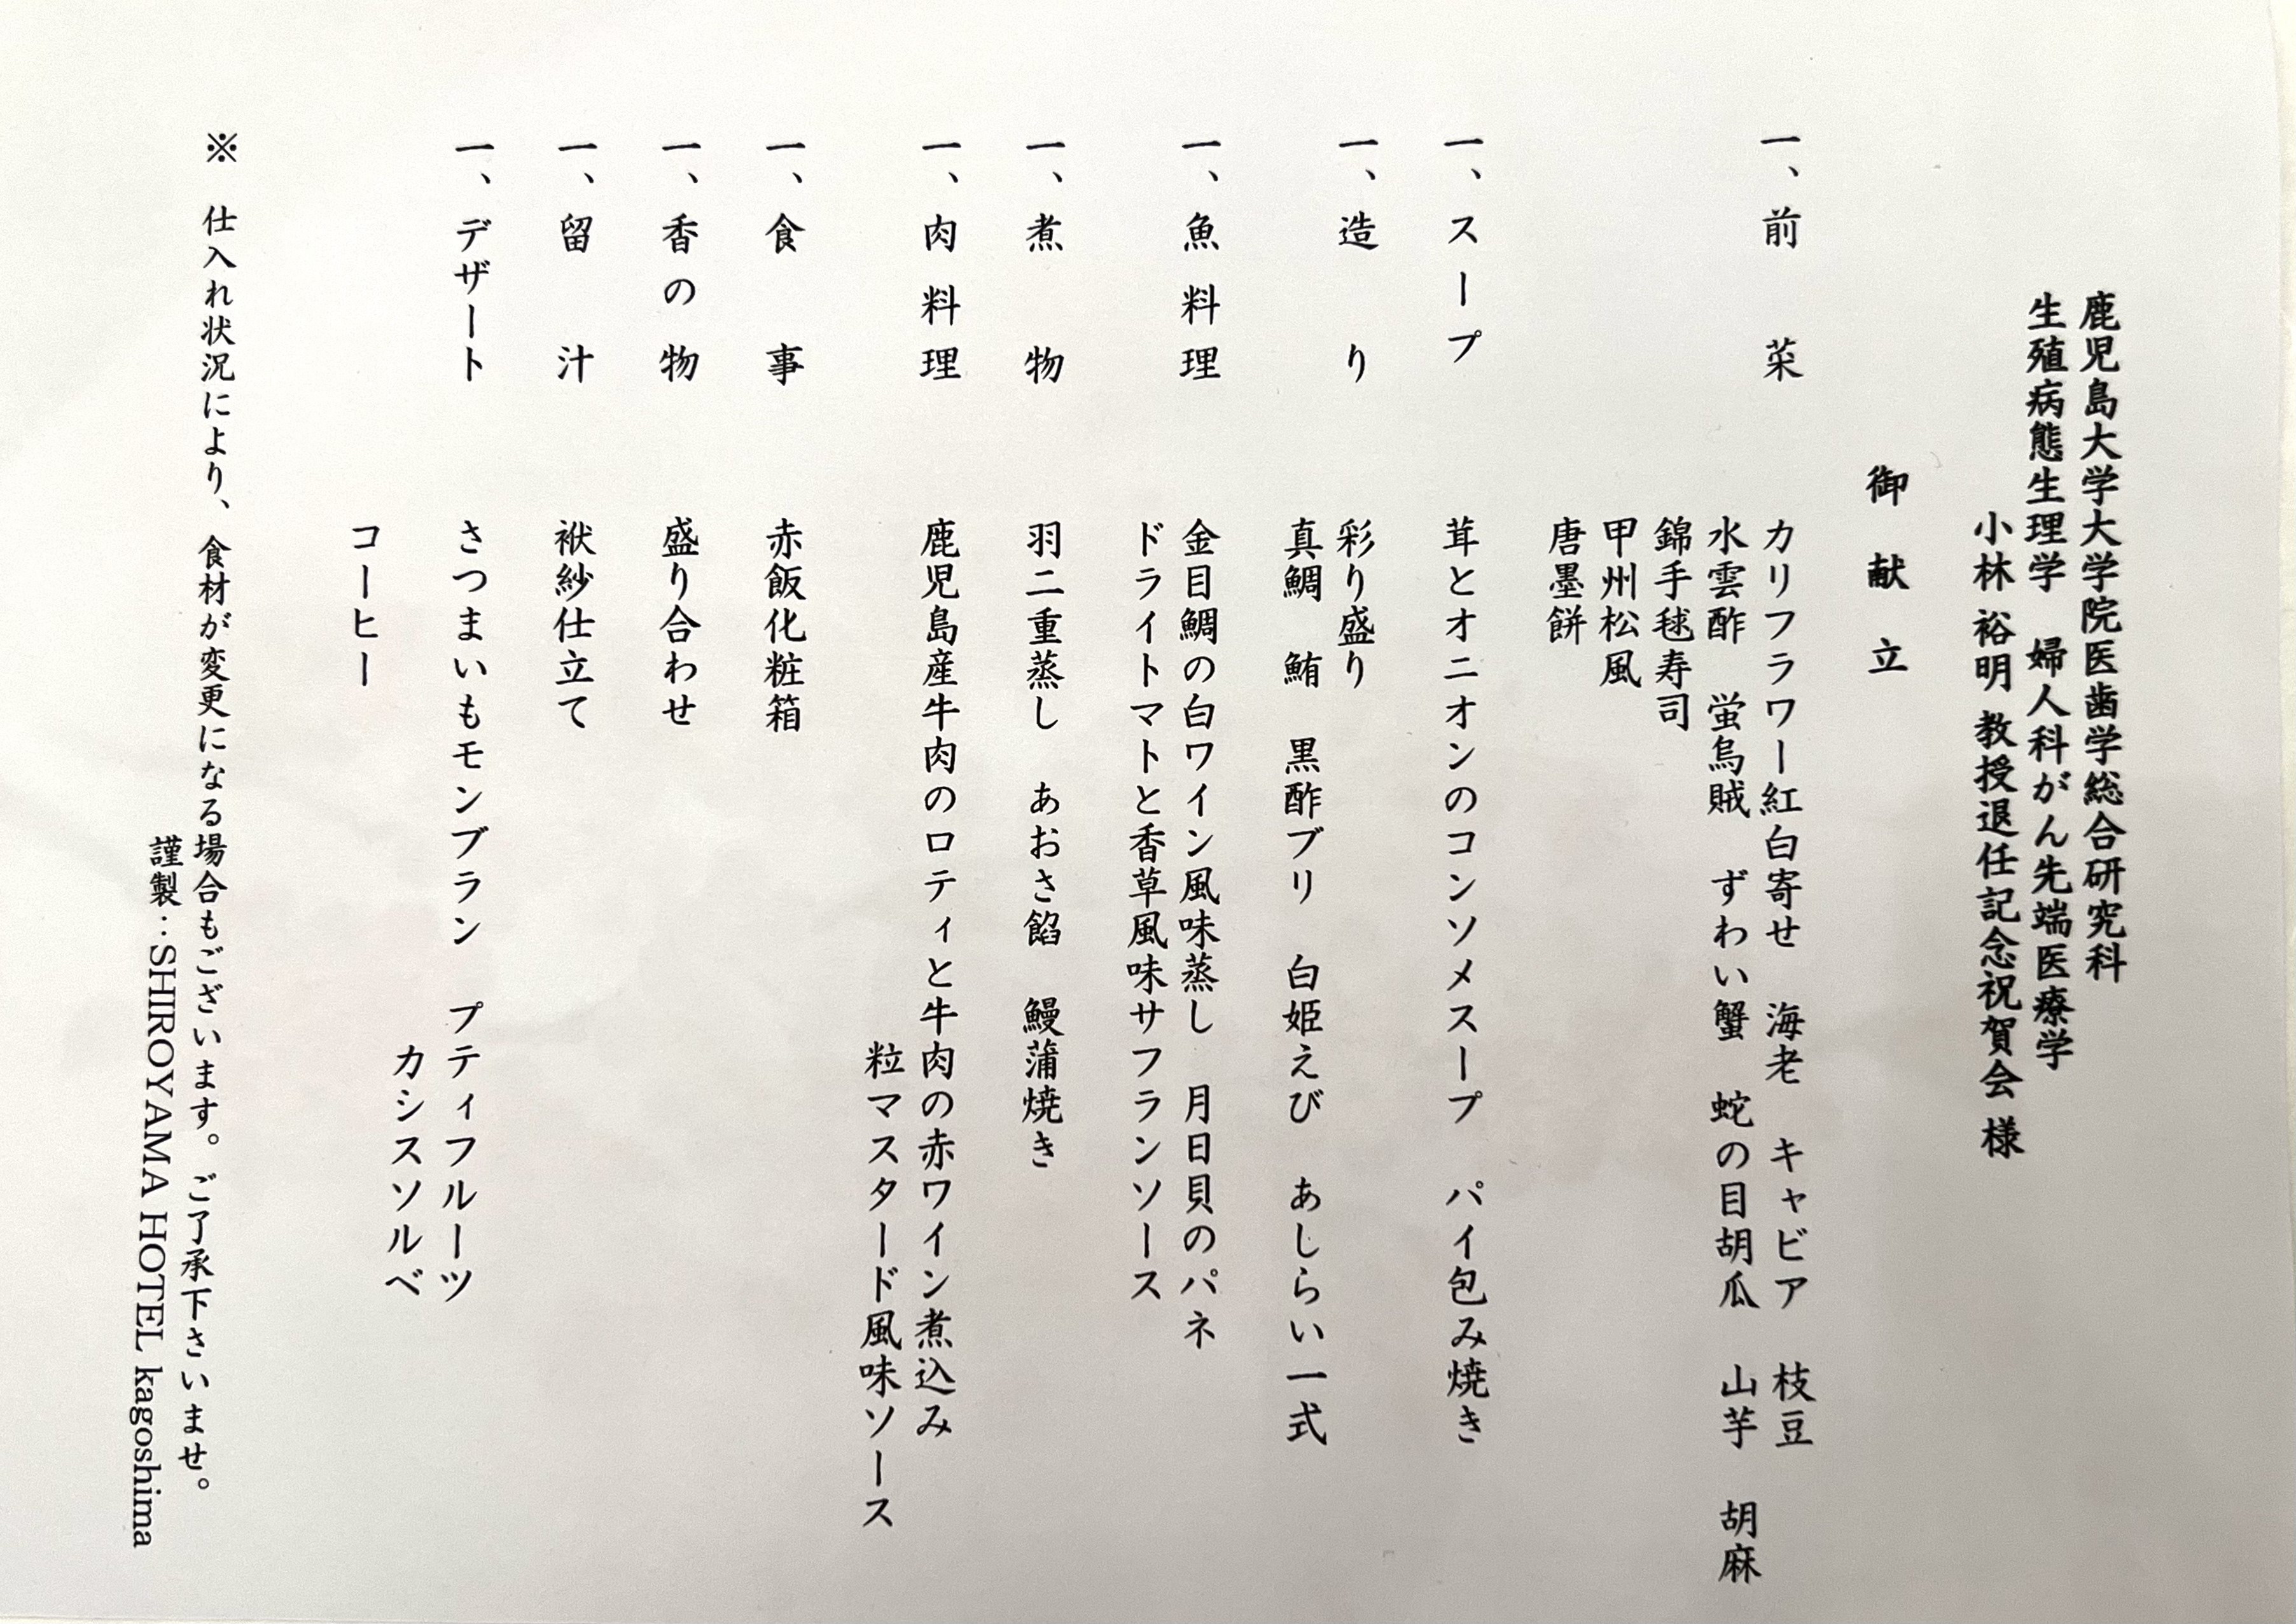 鹿児島大学大学院医歯学総合研究科
生殖病態生理学　婦人科がん先端医療学
小林 裕明 教授退任記念祝賀会 様
御　献　立
一、前　菜　カリフラワー紅白寄せ　海老　キャビア　枝豆
水雲酢　蛍烏賊　ずわい蟹　蛇の目胡瓜　山芋　胡麻
錦手毬寿司
甲州松風
唐墨餅
一、スープ　茸とオニオンのコンソメスープ　パイ包み焼き
一、造　り　彩り盛り
真鯛　鮪　黒酢ブリ　白姫えび　あしらい一式
一、魚料理　金目鯛の白ワイン風味蒸し　月日貝のパネ
ドライトマトと香草風味サフランソース
一、煮　物　羽二重蒸し　あおさ餡　鰻蒲焼き
一、肉料理　鹿児島産牛肉のロティと牛肉の赤ワイン煮込み
粒マスタード風味ソース
一、食　事　赤飯化粧箱
一、香の物　盛り合わせ
一、留　汁　袱紗仕立て
一、デザート　さつまいもモンブラン　プティフルーツ
カシスソルベ
コーヒー
※　仕入れ状況により、食材が変更になる場合もございます。ご了承下さいませ。
謹製：SHIROYAMA HOTEL kagoshima